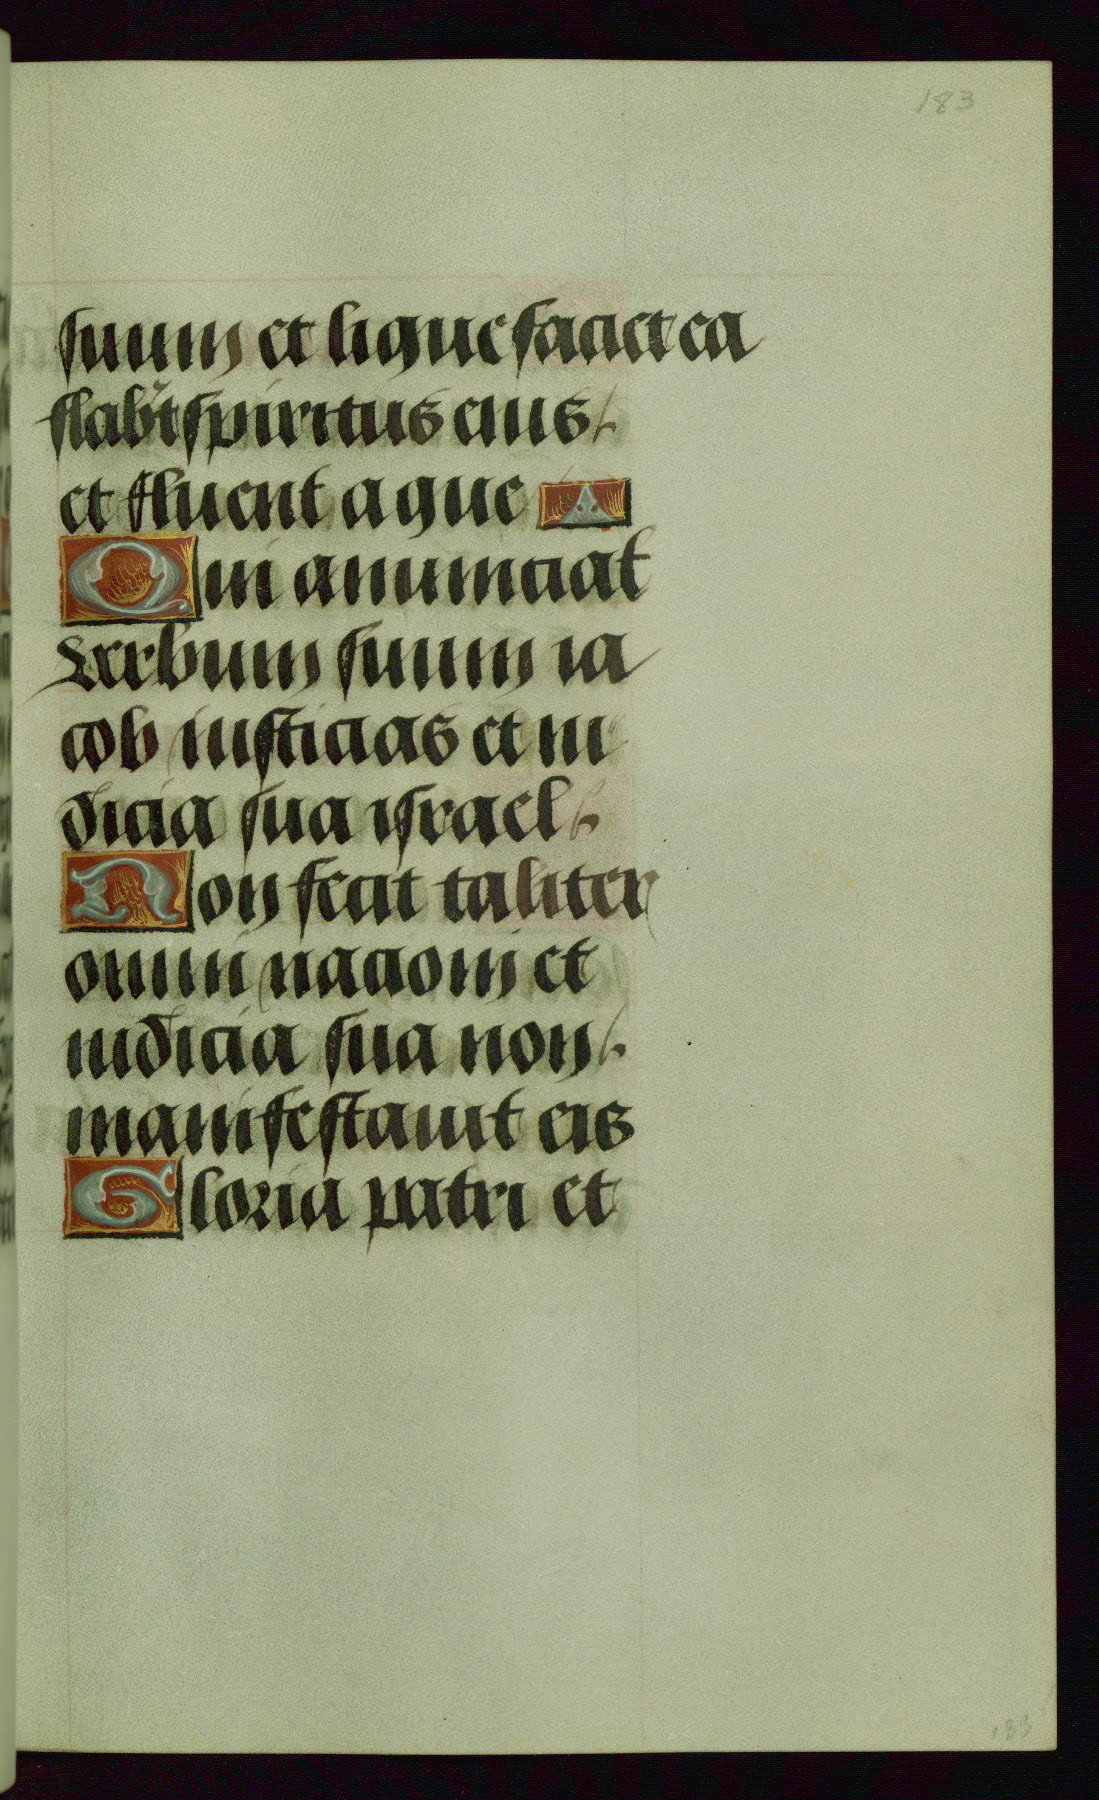 183
suum et liquefaciet ea
flab't spiritus eius
et fluent aque
Qui anunciat
verbum suum ia
cob iusticias et iu
dicia sua israel
Non fecit taliter
omni nacioni et
iudicia sua non
manifestauit eis
Gloria patri et
183